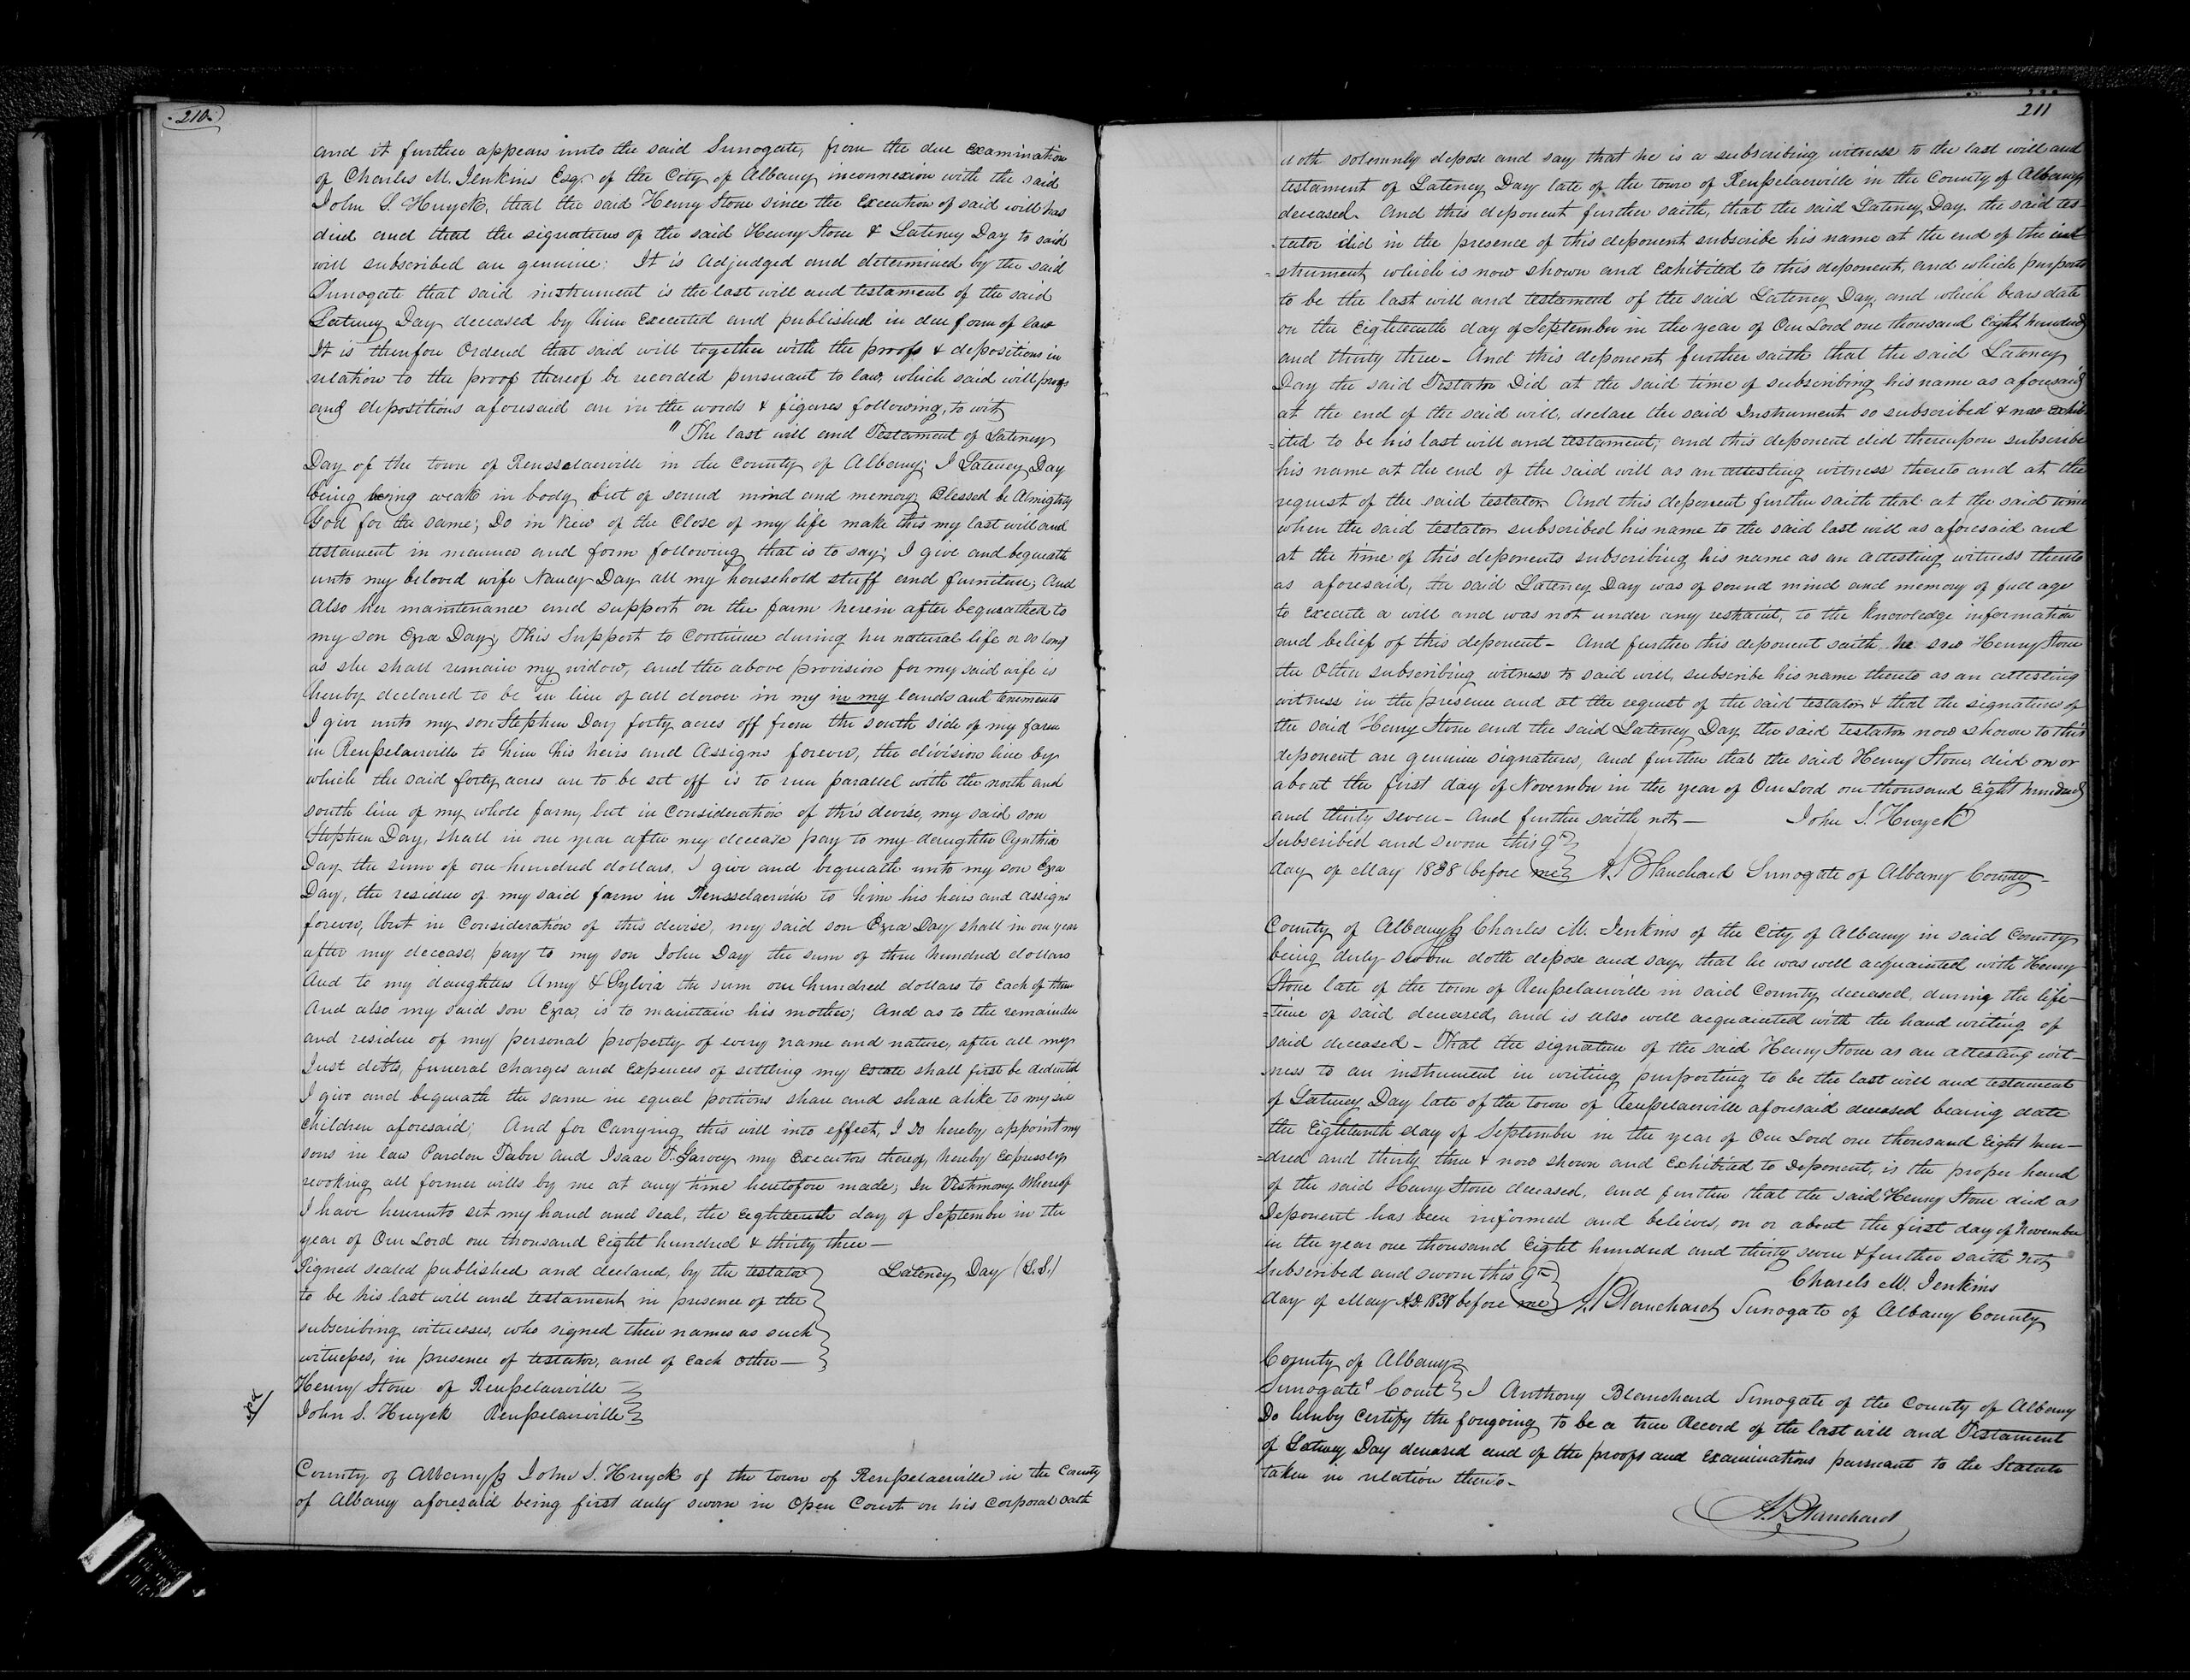 210
and it further appears unto the said Surrogate, from the due examination
of Charles M. Jenkins Esqr. of the City of Albany, inconnexion with the said
John S. Huyck, that the said Henry Stone since the Execution of said will has
died and that the signatures of the said Henry Stone & Lateney Day to said
will subscribed are genuine: It is adjudged and determined by the said
Surrogate that said instrument is the last will and testament of the said
Lateney Day deceased by him executed and published in due form of law
It is therefore Ordered that said will together with the proofs & depositions in
relation to the proof thereof be recorded pursuant to law, which said will proofs
and depositions aforesaid are in the words & figures following, to wit,
"The last will and Testament of Lateney
Day of the town of Rensselaerville in the County of Albany; I Lateney Day
being being weak in body but of sound mind and memory, Blessed be Almighty
God for the same; Do in View of the Close of my life make this my last will and
testament in manner and form following that is to say; I give and bequeath
unto my beloved wife Nancy Day all my household stuff and furniture; And
Also her maintenance and support on the farm herein after bequeathed to
my son Ezra Day, This Support to Continue during her natural life or so long
as she shall remain my widow, and the above provision for my said wife is
hereby declared to be in lieu of all dower in my in my lands and tenements
I give unto my son Stephen Day forty acres off from the south side of my farm
in Renſselaerville to him his heirs and Assigns forever, the division line by
which the said forty acres are to be set off is to run parallel with the north and
south line of my whole farm, but in Consideration of this devise, my said son
Stephen Day, shall in one year after my decease pay to my daughter Cynthia
Day the sum of one hundred dollars. I give and bequeath unto my son Ezra
Day, the residue of my said farm in Rensselaerville to him his heirs and assigns
forever, but in Consideration of this devise, my said son Ezra Day shall in one year
after my decease, pay to my son John Day the sum of three hundred dollars
And to my daughters Amy & Sylvia the sum one hundred dollars to each of them
And also my said son Ezra, is to maintain his mother; And as to the remainder
and residue of my personal property of every name and nature, after all my
Just debts, funeral charges and Expences of settling my Estate shall first be deducted
I give and bequeath the same in equal portions share and share alike to my six
children aforesaid; And for Carrying this will into effect, I do hereby appoint my
sons in law Pardon Taber and Isaac T. Garvey my Executors thereof, hereby expressly
revoking all former wills by me at any time heretofore made; In Testimony Whereof
I have hereunto set my hand and seal, the eighteenth day of September in the
year of Our Lord one thousand Eight hundred & thirty three —
Signed sealed published and declared, by the testator Lateney Day (L.S.)
to be his last will and testament in presence of the
subscribing witnesses, who signed their names as such
witneſses, in presence of testator, and of each other —
Henry Stone of Renſselaerville
John S. Huyck Renſselaerville
County of Albany ss John S. Huyck of the town of Renſselaerville in the County
of Albany aforesaid being first duly sworn in Open Court on his corporal oath
211
doth solemnly depose and say that he is a subscribing witness to the last will and
testament of Lateney Day late of the town of Renſselaerville in the County of Albany
deceased. And this deponent further saith, that the said Lateney Day the said tes-
-tator did in the presence of this deponent subscribe his name at the end of the in
=strument, which is now shown and Exhibited to this deponent, and which purports
to be the last will and testament of the said Lateney Day and which bears date
on the Eighteenth day of September in the year of Our Lord one thousand Eight hundred
and thirty three - And this deponent further saith that the said Lateney
Day the said Testator Did at the said time of subscribing his name as aforesaid
at the end of the said will, declare the said Instrument so subscribed & now exhib
=ited to be his last will and testament, and this deponent did thereupon subscribe
his name at the end of the said will as an attesting witness thereto and at the
request of the said testator. And this deponent further saith that at the said time
when the said testator subscribed his name to the said last will as aforesaid and
at the time of this deponents subscribing his name as an attesting witness thereto
as aforesaid, the said Lateney Day was of sound mind and memory of full age
to execute a will and was not under any restraint, to the knowledge information
and belief of this deponent - And further this deponent saith he saw Henry Stone
the Other subscribing witness to said will, subscribe his name thereto as an attesting
witness in the presence and at the request of the said testator & that the signatures of
the said Henry Stone and the said Lateney Day the said testator now shown to this
deponent are genuine signatures, and further that the said Henry Stone, died on or
about the first day of November in the year of Our Lord one thousand Eight hundred
and thirty seven - And further saith not — John S. Huyck
Subscribed and sworn this 9th
day of May 1838 before me A. Blanchard Surrogate of Albany County -
County of Albany ss Charles M. Jenkins of the City of Albany in said County
being duly sworn doth depose and say, that he was well acquainted with Henry
Stone late of the town of Renſselaerville in said County deceased, during the life-
=time of said deceased, and is also well acquainted with the hand writing of
said deceased - That the signature of the said Henry Stone as an attesting wit-
-ness to an instrument in writing purporting to be the last will and testament
of Lateney Day late of the town of Renſselaerville aforesaid deceased bearing date
the Eighteenth day of September in the year of Our Lord one thousand Eight hun-
=dred and thirty three & now shown and Exhibited to Deponent, is the proper hand
of the said Henry Stone deceased, and further that the said Henry Stone died as
Deponent has been informed and believes, on or about the first day of November
in the year one thousand Eight hundred and thirty seven & further saith not
Subscribed and sworn this 9th Charels M. Jenkins
day of May A.D. 1838 before me A. Blanchard Surrogate of Albany County
County of Albany
Surrogates Court I Anthony Blanchard Surrogate of the County of Albany
Do hereby Certify the foregoing to be a true Record of the last will and Testament
of Lateney Day deceased and of the proofs and Examinations pursuant to the Statute
taken in relation thereto-
A. Blanchard